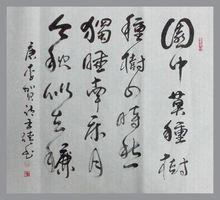 園中莫種樹
種樹四時愁
獨睡南床月
今秋似去秋
唐李賀詩